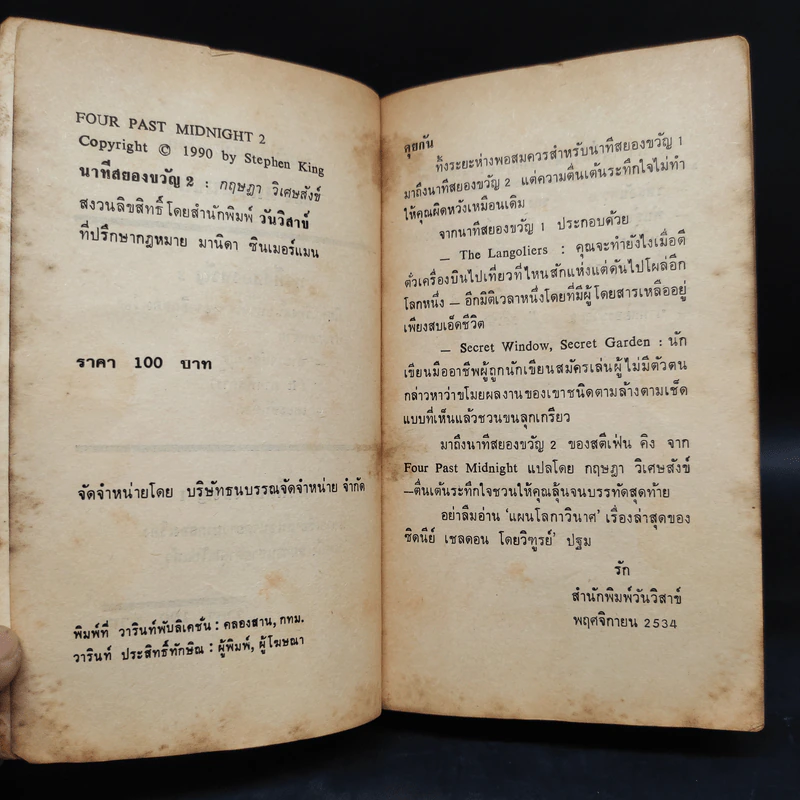 FOUR PAST MIDNIGHT 2
Copyright © 1990 by Stephen King
นาทีสยองขวัญ 2 : กฤษฎา วิเศษสังข์
สงวนลิขสิทธิ์ โดยสำนักพิมพ์ วันวิสาข์
ที่ปรึกษากฎหมาย มานิดา ซินเมอร์แมน
ราคา 100 บาท
จัดจำหน่ายโดย บริษัทธนบรรณจัดจำหน่าย จำกัด
พิมพ์ที่ วารินท์พับลิเคชั่น : คลองสาน, กทม.
วารินท์ ประสิทธิ์ทักษิณ : ผู้พิมพ์, ผู้โฆษณา
คุยกัน
ทิ้งระยะห่างพอสมควรสำหรับนาทีสยองขวัญ 1
มาถึงนาทีสยองขวัญ 2 แต่ความตื่นเต้นระทึกใจไม่ทำ
ให้คุณผิดหวังเหมือนเดิม
จากนาทีสยองขวัญ 1 ประกอบด้วย
— The Langoliers : คุณจะทำยังไงเมื่อตี
ตั๋วเครื่องบินไปเที่ยวที่ไหนสักแห่งแต่ดันไปโผล่อีก
โลกหนึ่ง — อีกมิติเวลาหนึ่งโดยที่มีผู้โดยสารเหลืออยู่
เพียงสบเอ็คชีวิต
— Secret Window, Secret Garden : นัก
เขียนมืออาชีพผู้ถูกนักเขียนสมัครเล่นผู้ไม่มีตัวตน
กล่าวหาว่าขโมยผลงานของเขาชนิดตามล้างตามเช็ด
แบบที่เห็นแล้วชวนขนลุกเกรียว
มาถึงนาทีสยองขวัญ 2 ของสตีเฟ่น คิง จาก
Four Past Midnight แปลโดย กฤษฎา วิเศษสังข์
—ตื่นเต้นระทึกใจชวนให้คุณลุ้นจนบรรทัดสุดท้าย
อย่าลืมอ่าน 'แผนโลกาวินาศ' เรื่องล่าสุดของ
ซิดนีย์ เชลดอน โดยวิฑูรย์' ปฐม
รัก
สำนักพิมพ์วันวิสาข์
พฤศจิกายน 2534